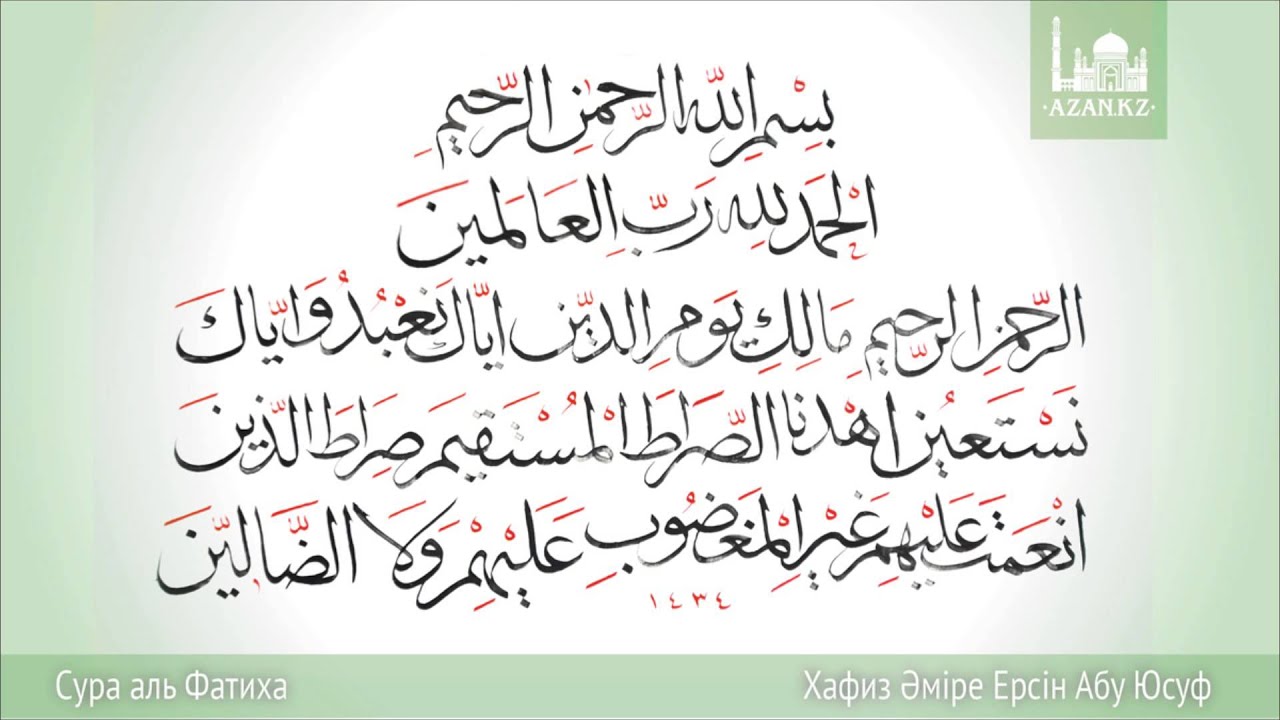 ·AZAN.KZ·
بِسْمِ اللّٰهِ الرَّحْمٰنِ الرَّحِيمِ
الْحَمْدَ لِلّٰهِ رَبِّ الْعَالَمِينَ
الرَّحْمٰنِ الرَّحِيمِ مَالِكِ يَوْمِ الدِّينِ اِيَّاكَ نَعْبُدُ وَاِيَّاكَ
نَسْتَعِينُ اِهْدِنَا الصِّرَاطَ الْمُسْتَقِيمَ صِرَاطَ الَّذِينَ
اَنْعَمْتَ عَلَيْهِمْ غَيْرِ الْمَغْضُوبِ عَلَيْهِمْ وَلَا الضَّالِّينَ
١٤٣٤
Сура аль Фатиха
Хафиз Әміре Ерсін Абу Юсуф